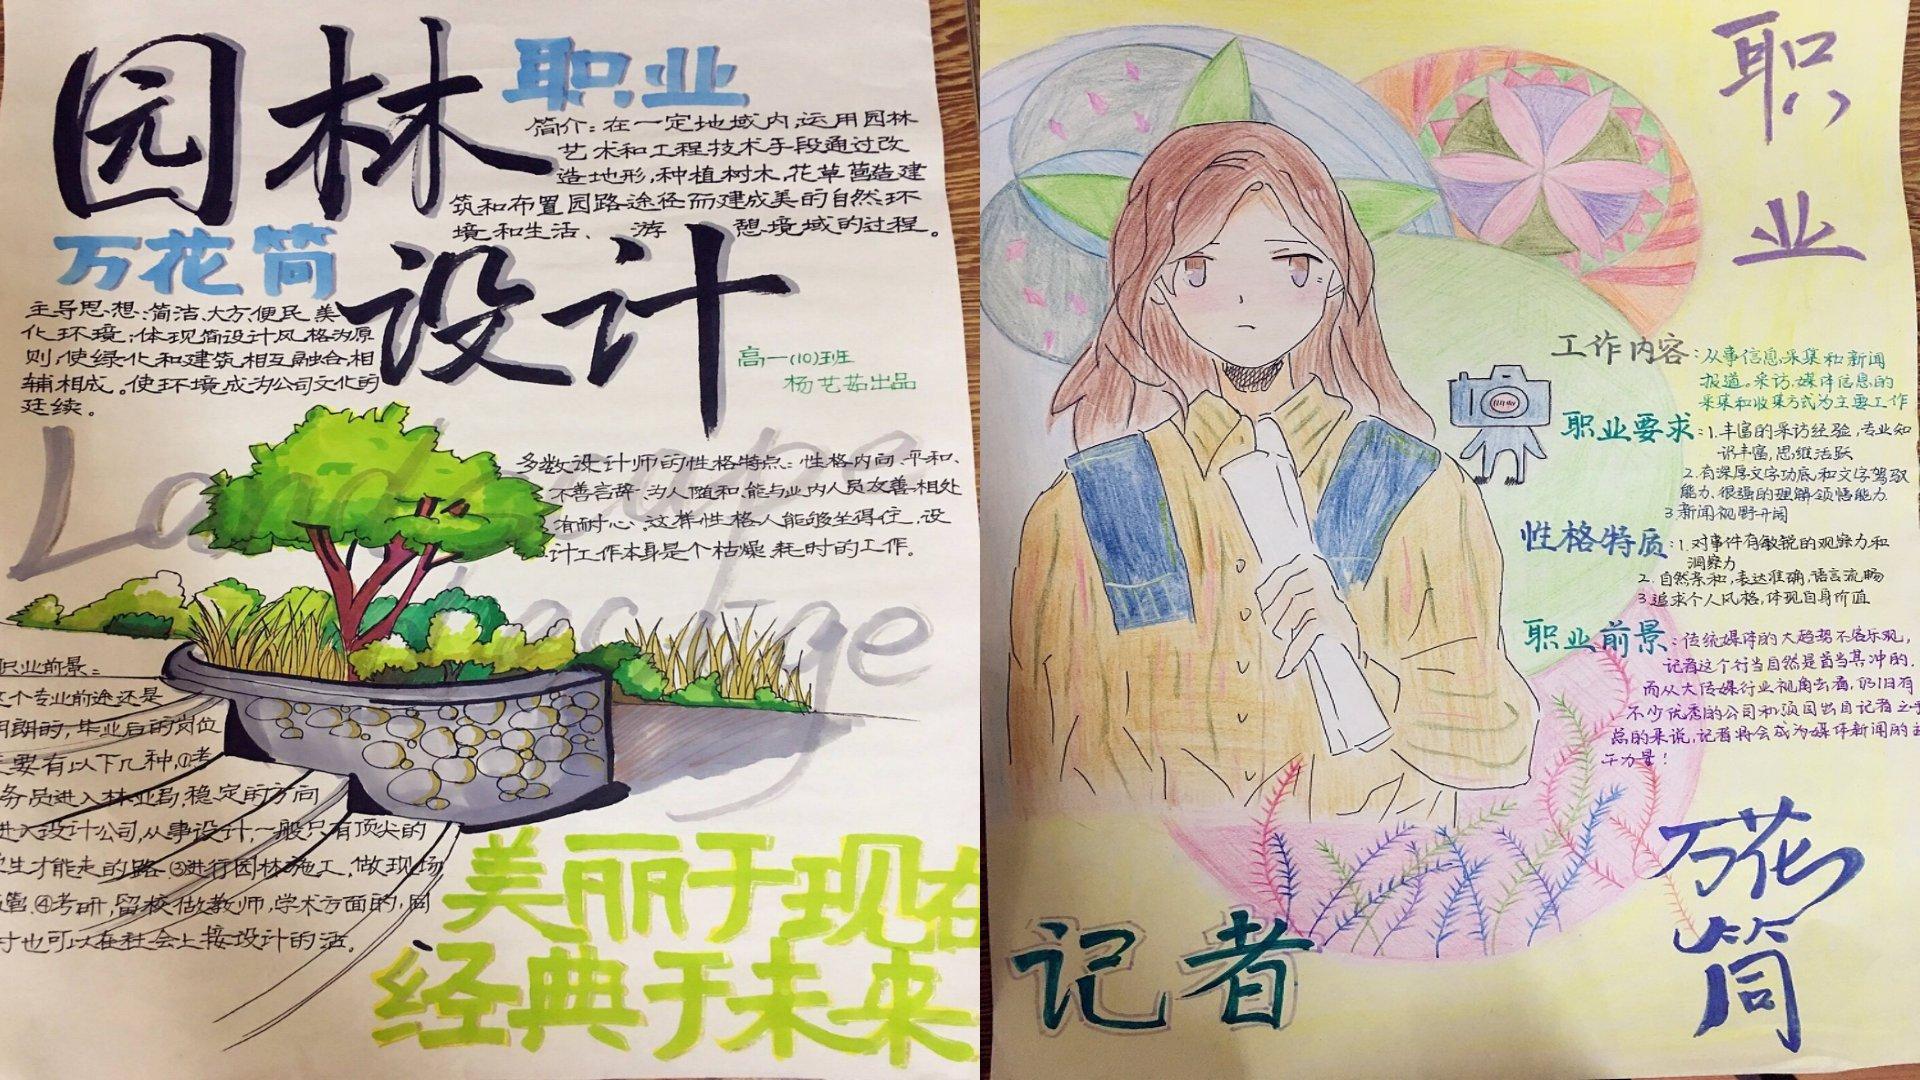 园林
职业
简介：在一定地域内运用园林
艺术和工程技术手段通过改
造地形，种植树木，花草营造建
筑和布置园路途径而建成美的自然环
境和生活、游憩境域的过程。
万花筒
设计
主导思想：简洁、大方、便民、美
化环境；体现简设计风格为原
则，使绿化和建筑相互融合，相
辅相成。使环境成为公司文化的
延续。
高一(10)班
杨艺茹出品
Landscape
多数设计师的性格特点：性格内向、平和、
不善言辞、为人随和、能与业内人员友善相处
有耐心。这样性格人能够坐得住，设
计工作本身是个枯燥耗时的工作。
职业前景：
这个专业前途还是
明朗的，毕业后的岗位
主要有以下几种，①考
务员进入林业局，稳定的方向
进入设计公司，从事设计，一般只有顶尖的
学生才能走的路③进行园林施工，做现场
④考研，留校做教师，学术方面的，同
时也可以在社会上接设计的活。
美丽于现在
经典于未来
职业
工作内容：从事信息采集和新闻
报道。采访，媒体信息的
采集和收集方式为主要工作
职业要求：1.丰富的采访经验，专业知
识丰富，思维活跃
2.有深厚文字功底和文字驾驭
能力.很强的理解领悟能力.
3.新闻视野开阔
性格特质：1.对事件有敏锐的观察力和
洞察力
2.自然亲和，表达准确，语言流畅
3.追求个人风格，体现自身价值
职业前景：传统媒体的大趋势不容乐观，
记者这个行当自然是首当其冲的.
而从大传媒行业视角去看，仍旧有
不少优秀的公司和项目出自记者之手
总的来说，记者将会成为媒体新闻的主
干力量！
万花筒
记者